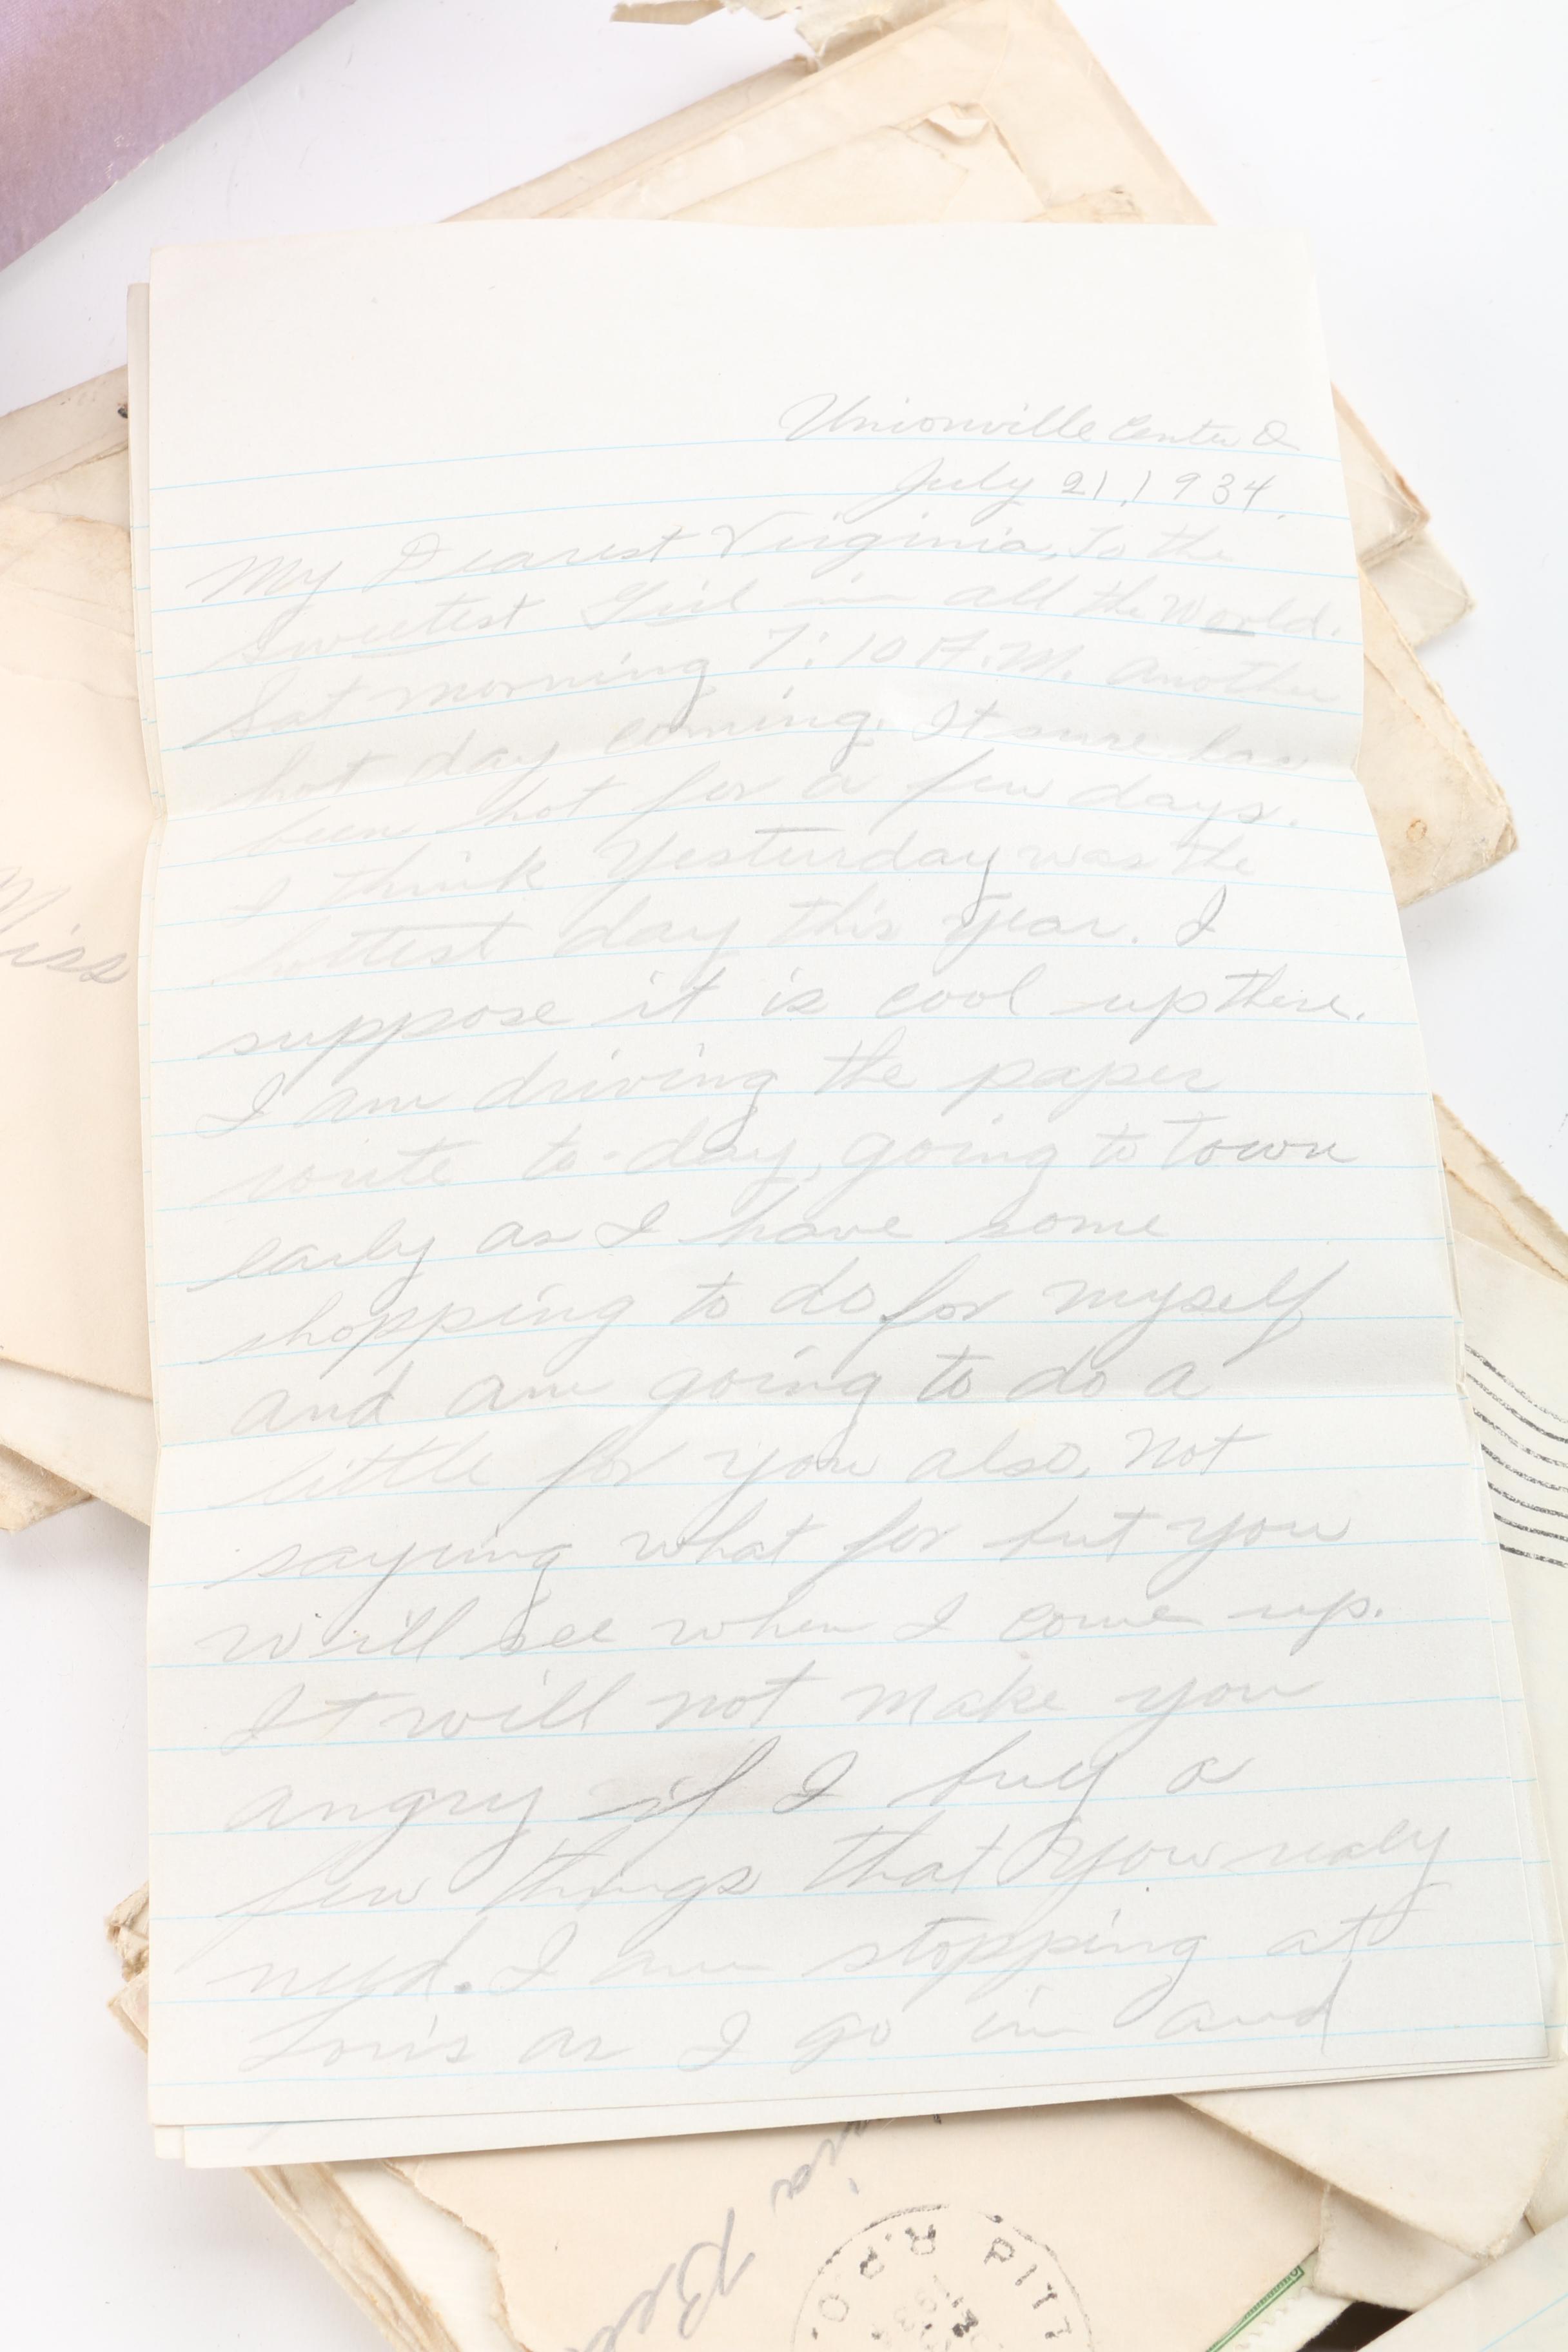 Unionville Center O
July 21, 1934.
My Dearest Virginia, To the
sweetest Girl in all the World.
Sat morning 7:10 A.M. another
hot day coming. It sure has
been hot for a few days.
I think Yesturday was the
hottest day this year. I
suppose it is cool up there.
I am driving the paper
route to-day, going to town
early as I have some
shopping to do for myself
and am going to do a
little for you also, not
saying what for but you
will see when I come up.
It will not make you
angry if I buy a
few things that you realy
need. I am stopping at
as I go in and
Miss
PITT
R.P.O.